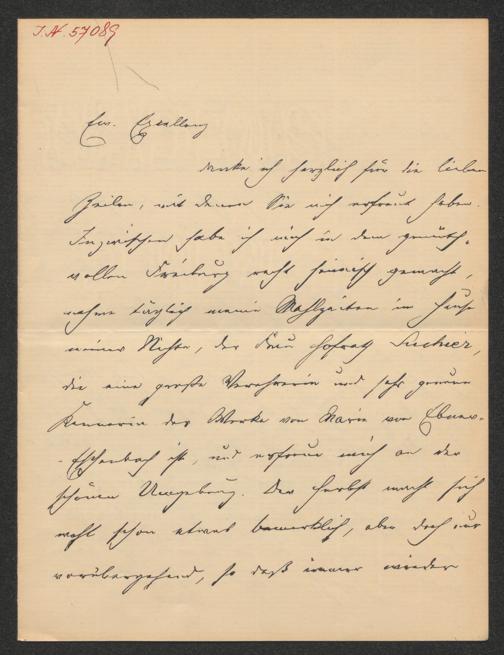 J.N. 57089
Ew. Exzellenz
danke ich herzlich für die lieben
Zeilen, mit denen Sie mich erfreut haben.
Inzwischen habe ich mich in dem gemüth-
vollen Freiburg recht heimisch gemacht,
nehme täglich meine Mahlzeiten im Hause
meiner Nichte, der Frau Hofrath Luckier,
die eine große Verehrerin und sehr genaue
Kennerin der Werke von Marie von Ebner-
-Eschenbach ist, und erfreue mich an der
schönen Umgebung. Der Herbst macht sich
wohl schon etwas bemerklich, aber doch nur
vorübergehend, so daß immer wieder